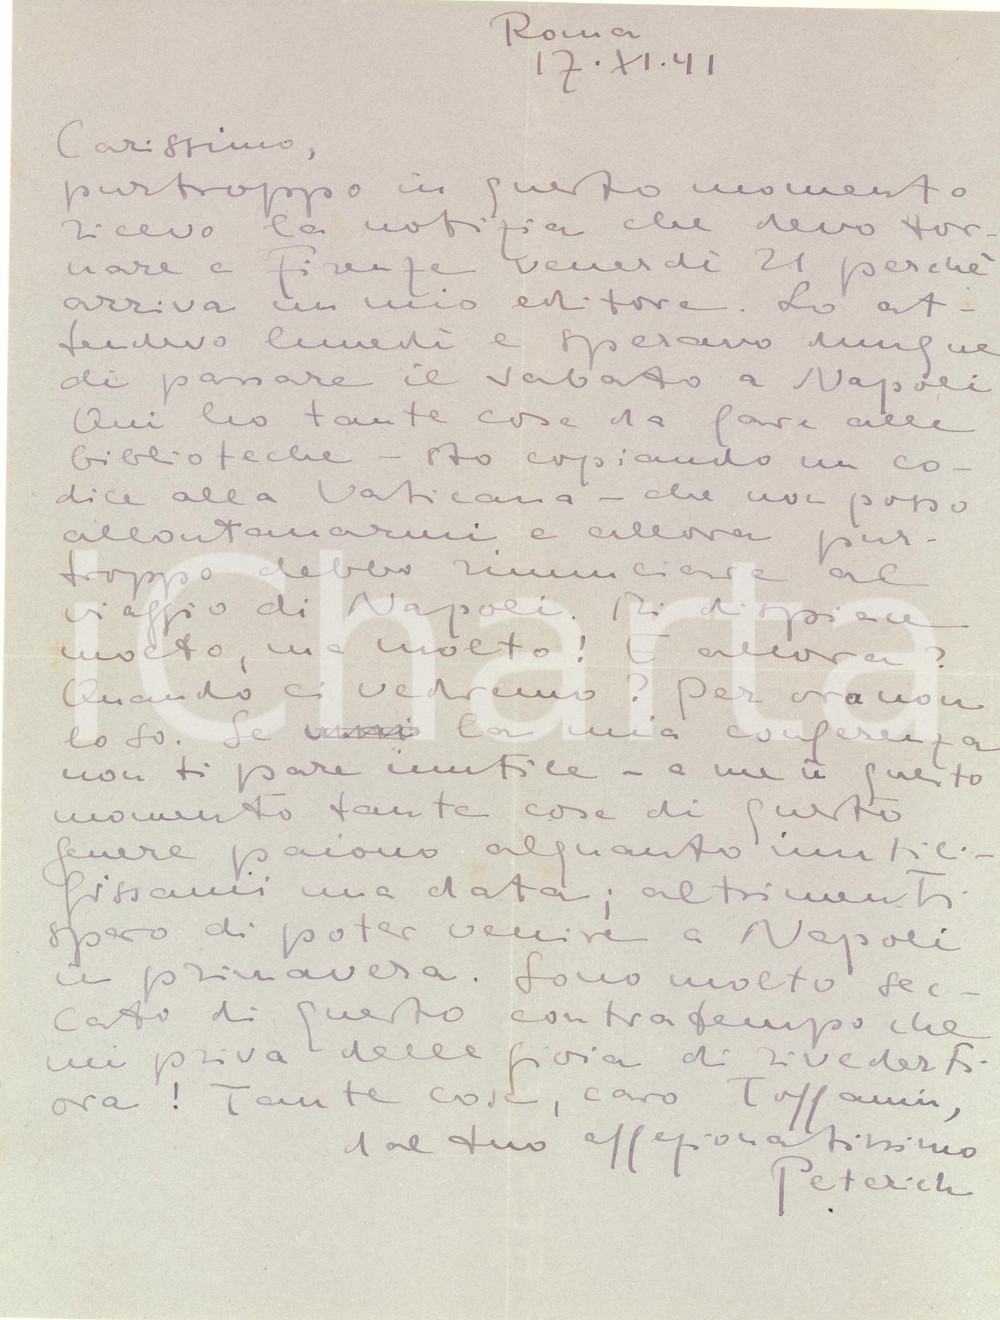 Roma
17.XI.41
Carissimo,
purtroppo in questo momento
ricevo la notizia che devo tor-
nare a Firenze venerdì 21 perchè
arriva un mio editore. Lo at-
tendevo lunedì e speravo dunque
di passare il sabato a Napoli
Qui ho tante cose da fare alle
biblioteche – sto copiando un co-
dice alla Vaticana – che non posso
allontanarmi e allora pur-
troppo debbo rinunciare al
viaggio di Napoli. Mi dispiace
molto, ma molto! E allora?
Quando ci vedremo? Per ora non
lo so. Se la mia conferenza
non ti pare inutile – a me in questo
momento tante cose di questo
genere paiono alquanto inutili –
fissami una data; altrimenti
spero di poter venire a Napoli
in primavera. Sono molto sec-
cato di questo contratempo che
mi priva della gioia di rivederti
ora! Tante cose, caro Toffanin,
dal tuo affezionatissimo
Peterich
iCharta